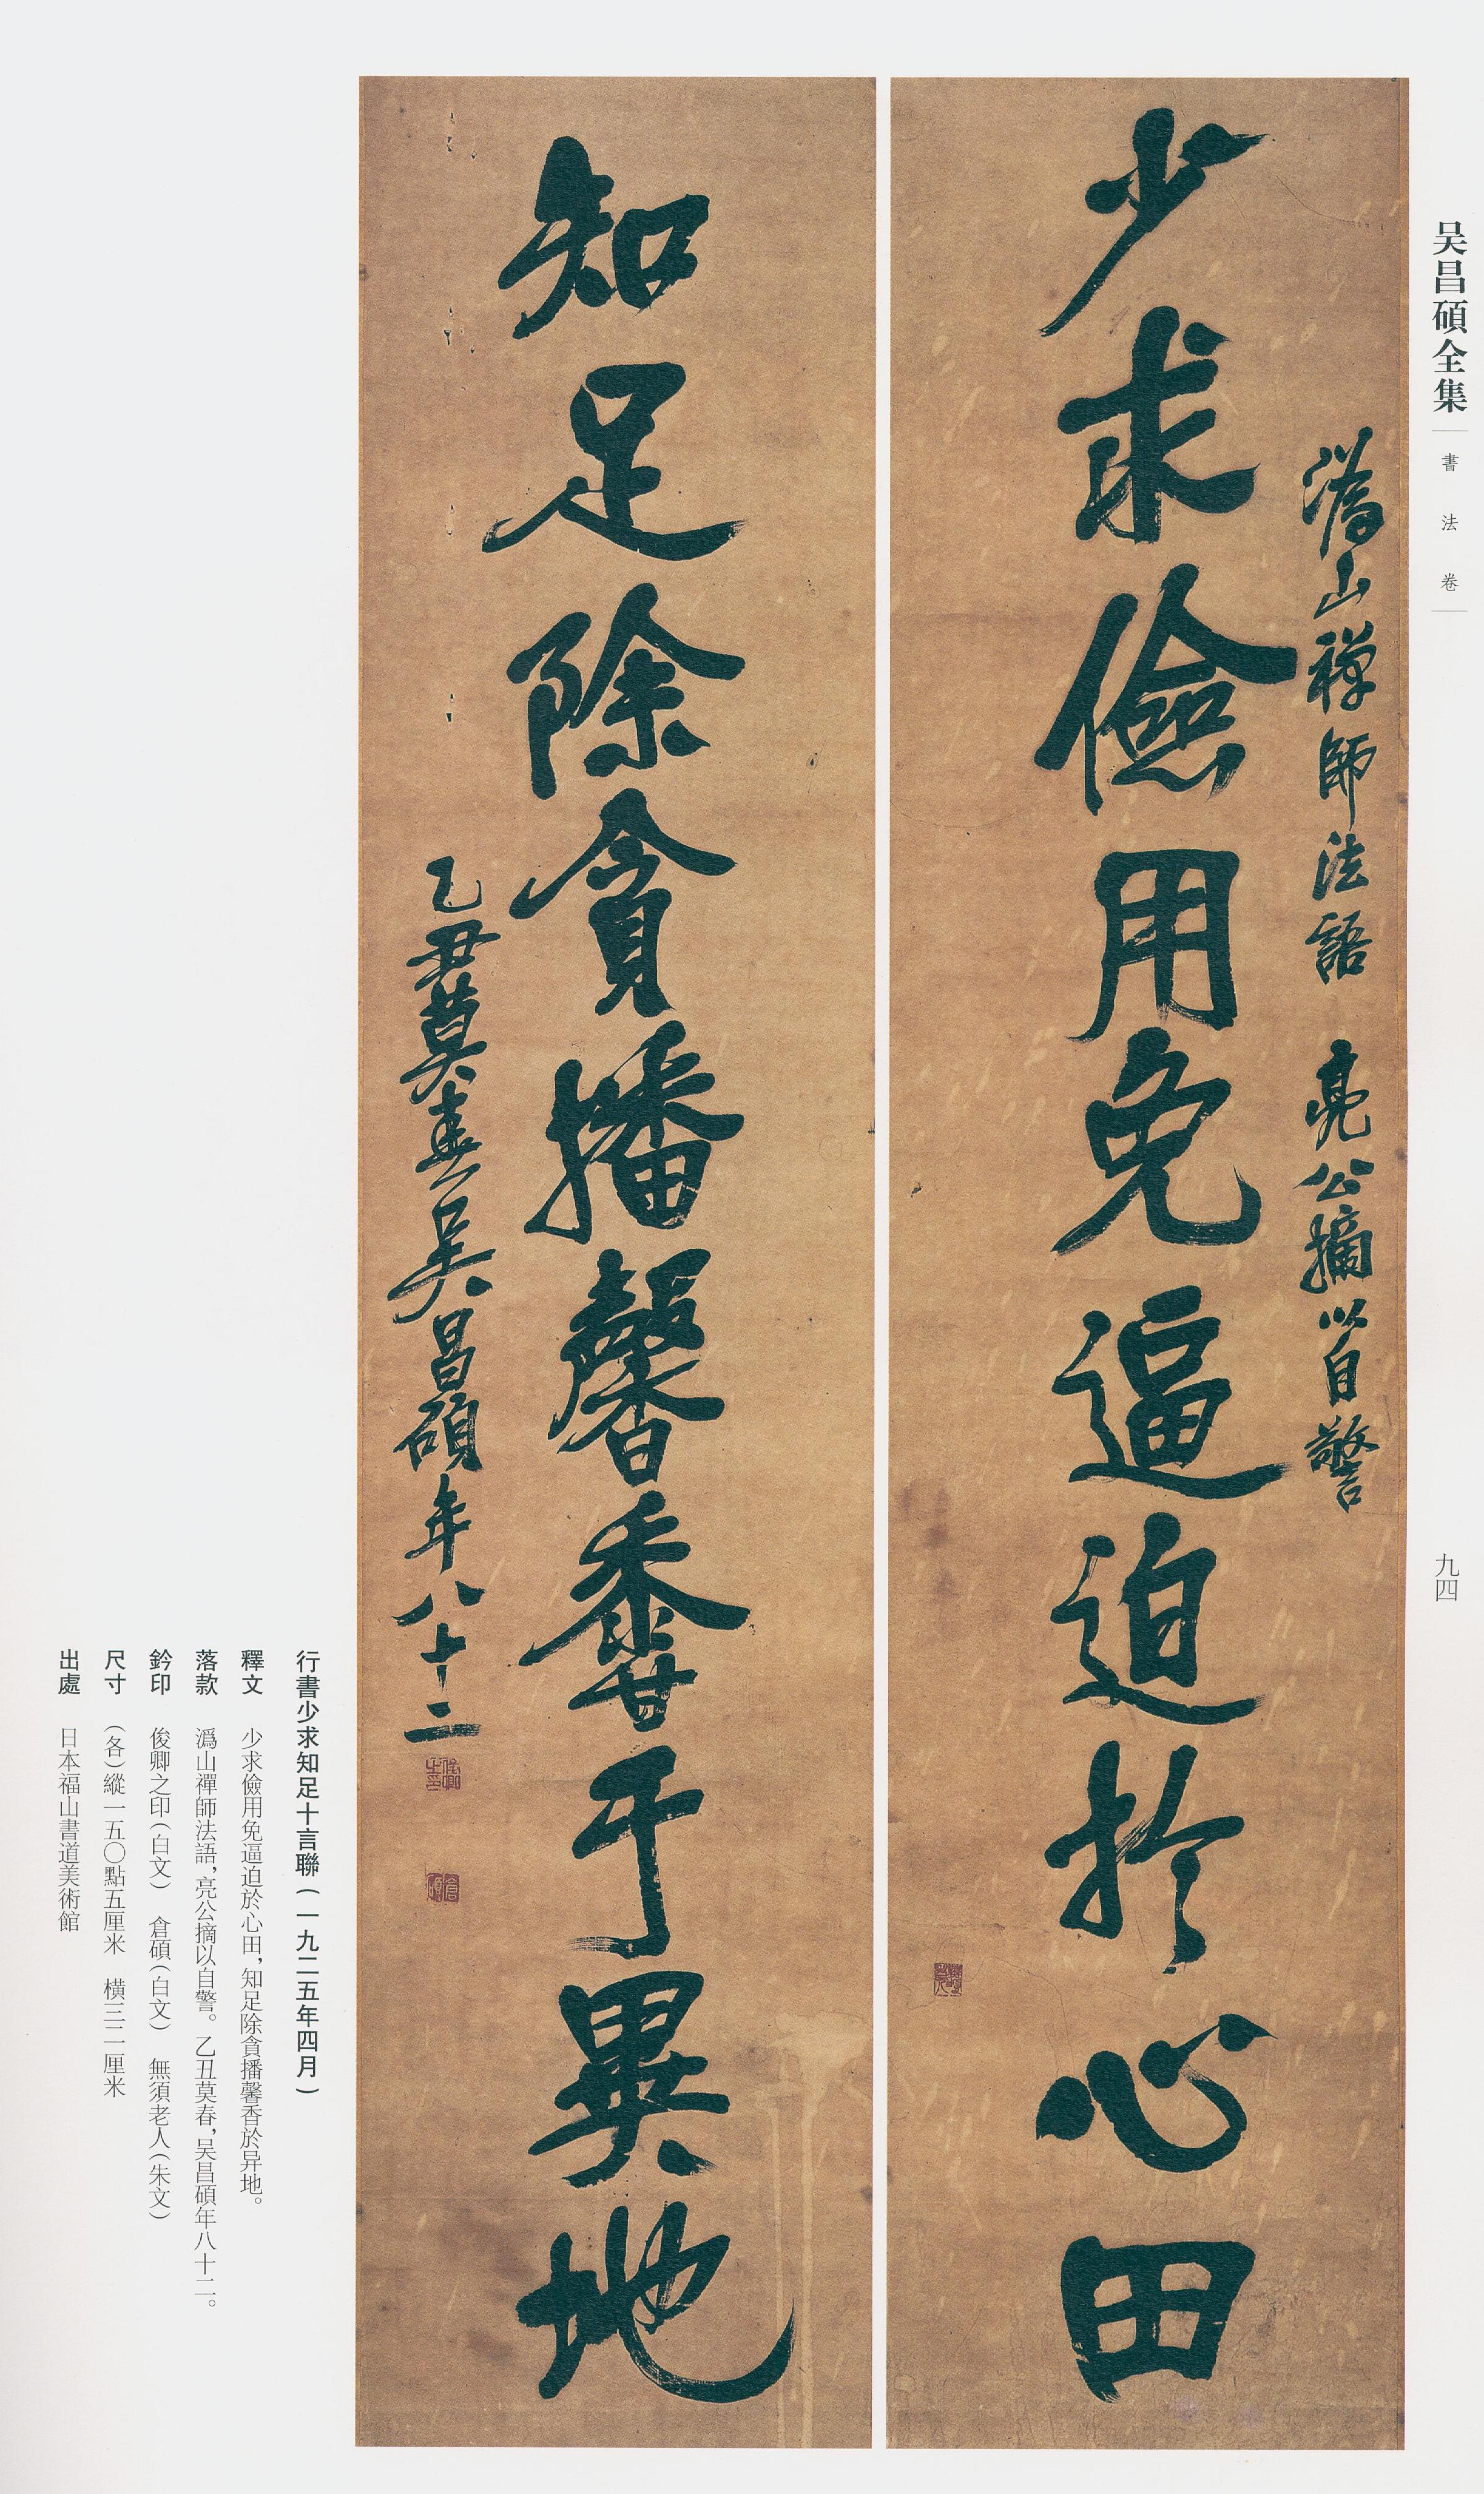 吴昌碩全集
書法卷
九四
潙山禪師法語 亮公摘以自警
少求儉用免逼迫於心田
無須老人
知足除貪播馨香于異地
乙丑莫春吳昌碩年八十二
俊卿之印
倉碩
行書少求知足十言聯(一九二五年四月)
釋文 少求儉用免逼迫於心田,知足除貪播馨香於异地。
落款 潙山禪師法語,亮公摘以自警。乙丑莫春,吴昌碩年八十二。
鈐印 俊卿之印(白文) 倉碩(白文) 無須老人(朱文)
尺寸 (各)縱一五〇點五厘米 橫三二厘米
出處 日本福山書道美術館